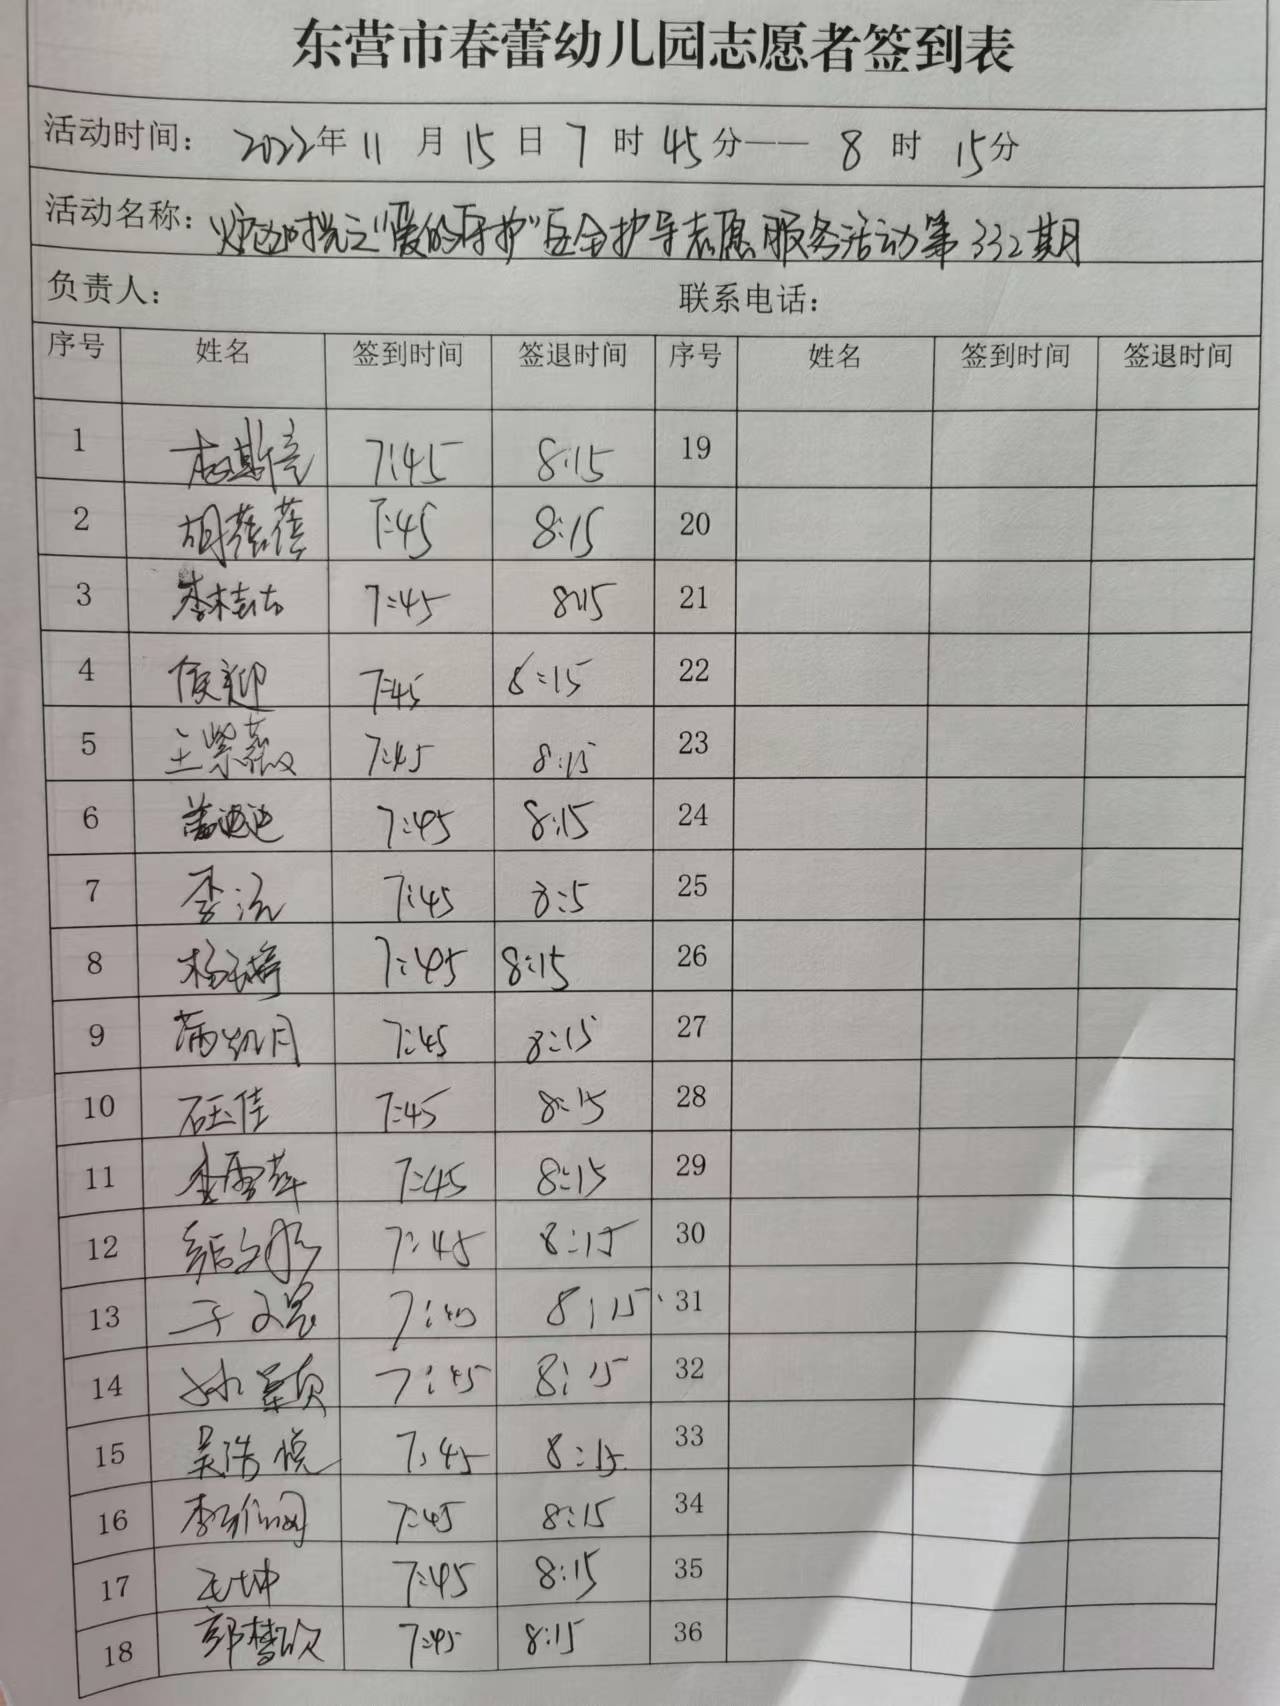 东营市春蕾幼儿园志愿者签到表
活动时间: 2022年 11 月 15 日 7 时 45 分—— 8 时 15分
活动名称: "爱的守护"安全护导志愿服务活动第332期
负责人: 联系电话:
序号 姓名 签到时间 签退时间 序号 姓名 签到时间 签退时间
1 7:45 8:15 19
2 胡蓓蓓 7:45 8:15 20
3 李桂花 7:45 8:15 21
4 侯迎 7:45 8:15 22
5 王紫薇 7:45 8:15 23
6 7:45 8:15 24
7 李沅 7:45 8:5 25
8 杨玉婷 7:45 8:15 26
9 蒲凯月 7:45 8:15 27
10 石玉佳 7:45 8:15 28
11 李雪萍 7:45 8:15 29
12 7:45 8:15 30
13 8:15 31
14 孙颖 7:45 8:15 32
15 吴浩悦 7:45 8:15 33
16 7:45 8:15 34
17 毛坤 7:45 8:15 35
18 郭梦欣 7:45 8:15 36